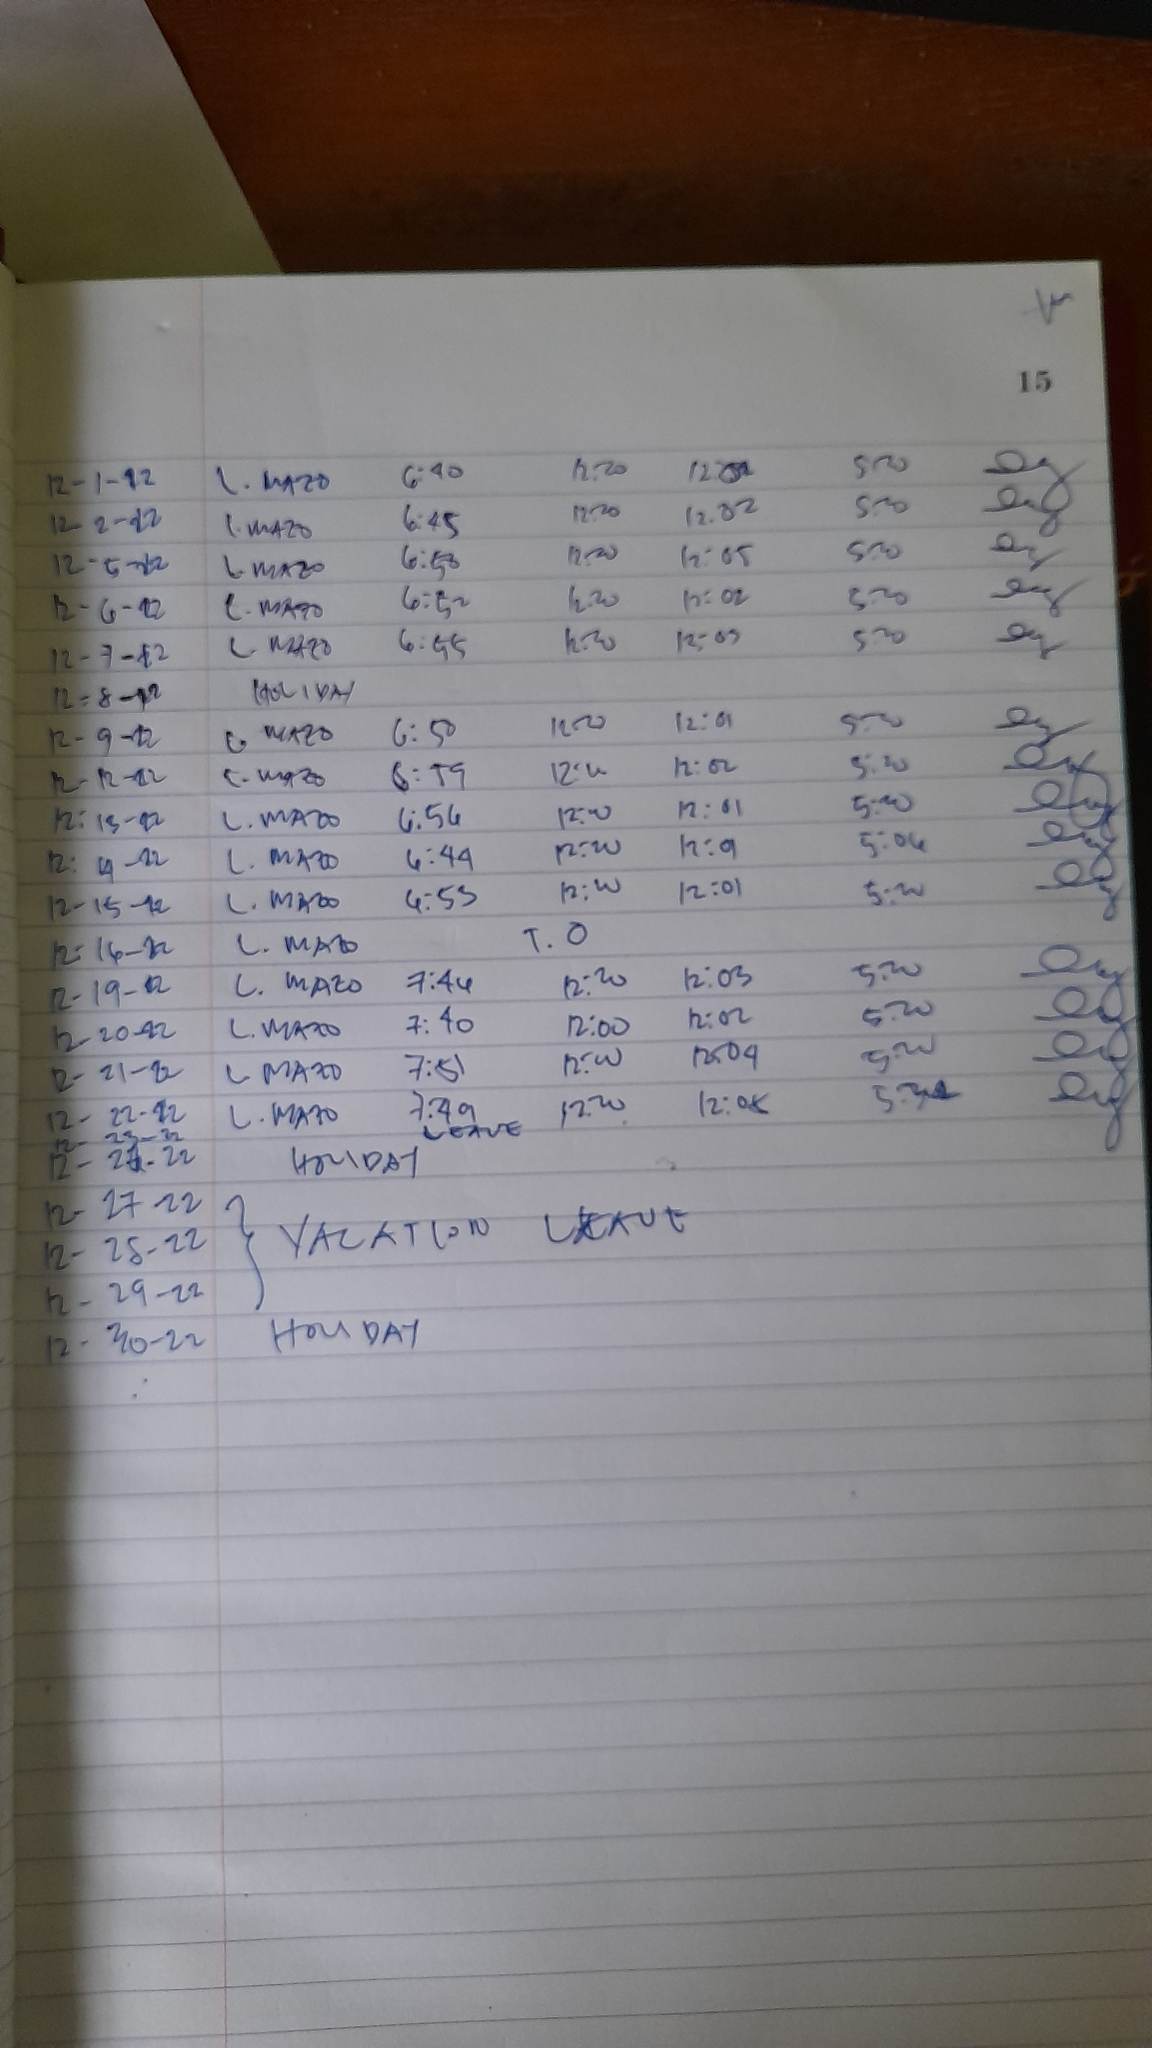 15
12-1-22 L. MAZO 6:40 12:00 5:00
12-2-22 L. MAZO 6:45 12:00 12:02 5:00
12-5-22 L. MAZO 12:00 12:05 5:00
12-6-22 L. MAZO 6:52 12:00 12:02 5:00
12-7-22 L. MAZO 6:55 12:00 12:03 5:00
12-8-22 HOLIDAY
12-9-22 L. MAZO 6:50 12:00 12:01 5:00
12-12-22 L. MAZO 6:59 12:00 12:02 5:00
12-13-22 L. MAZO 6:56 12:00 12:01 5:00
12-14-22 L. MAZO 6:49 12:00 5:06
12-15-22 L. MAZO 6:53 12:00 12:01 5:00
12-16-22 L. MAZO T.O
12-19-22 L. MAZO 7:46 12:00 12:03 5:00
12-20-22 L. MAZO 7:40 12:00 12:02 5:00
12-21-22 L. MAZO 7:51 12:00 12:04 5:00
12-22-22 L. MAZO 7:49 12:00
12-23-22 LEAVE
12-26-22 HOLIDAY
12-27-22
12-28-22 VACATION LEAVE
12-29-22
12-30-22 HOLIDAY